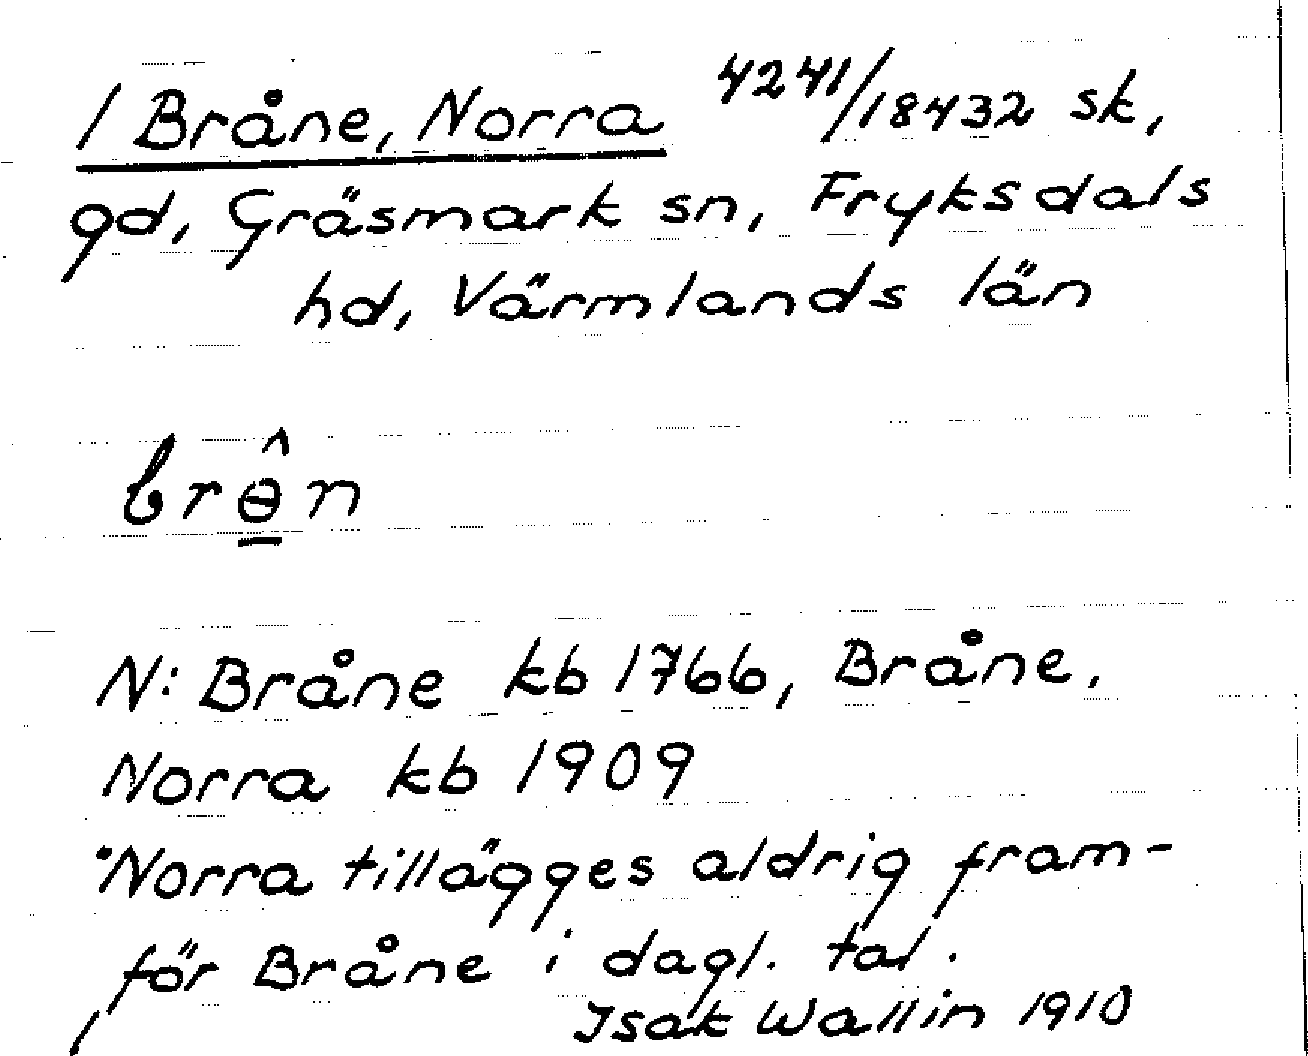 / Bråne, Norra 4241/18432 sk,
gd, Gräsmark sn, Fryksdals
hd, Värmlands län
brɵ̲̂n
N: Bråne kb 1766, Bråne,
Norra kb 1909
"Norra tillägges aldrig fram-
för Bråne" i dagl. tal.
/ Isak Wallin 1910